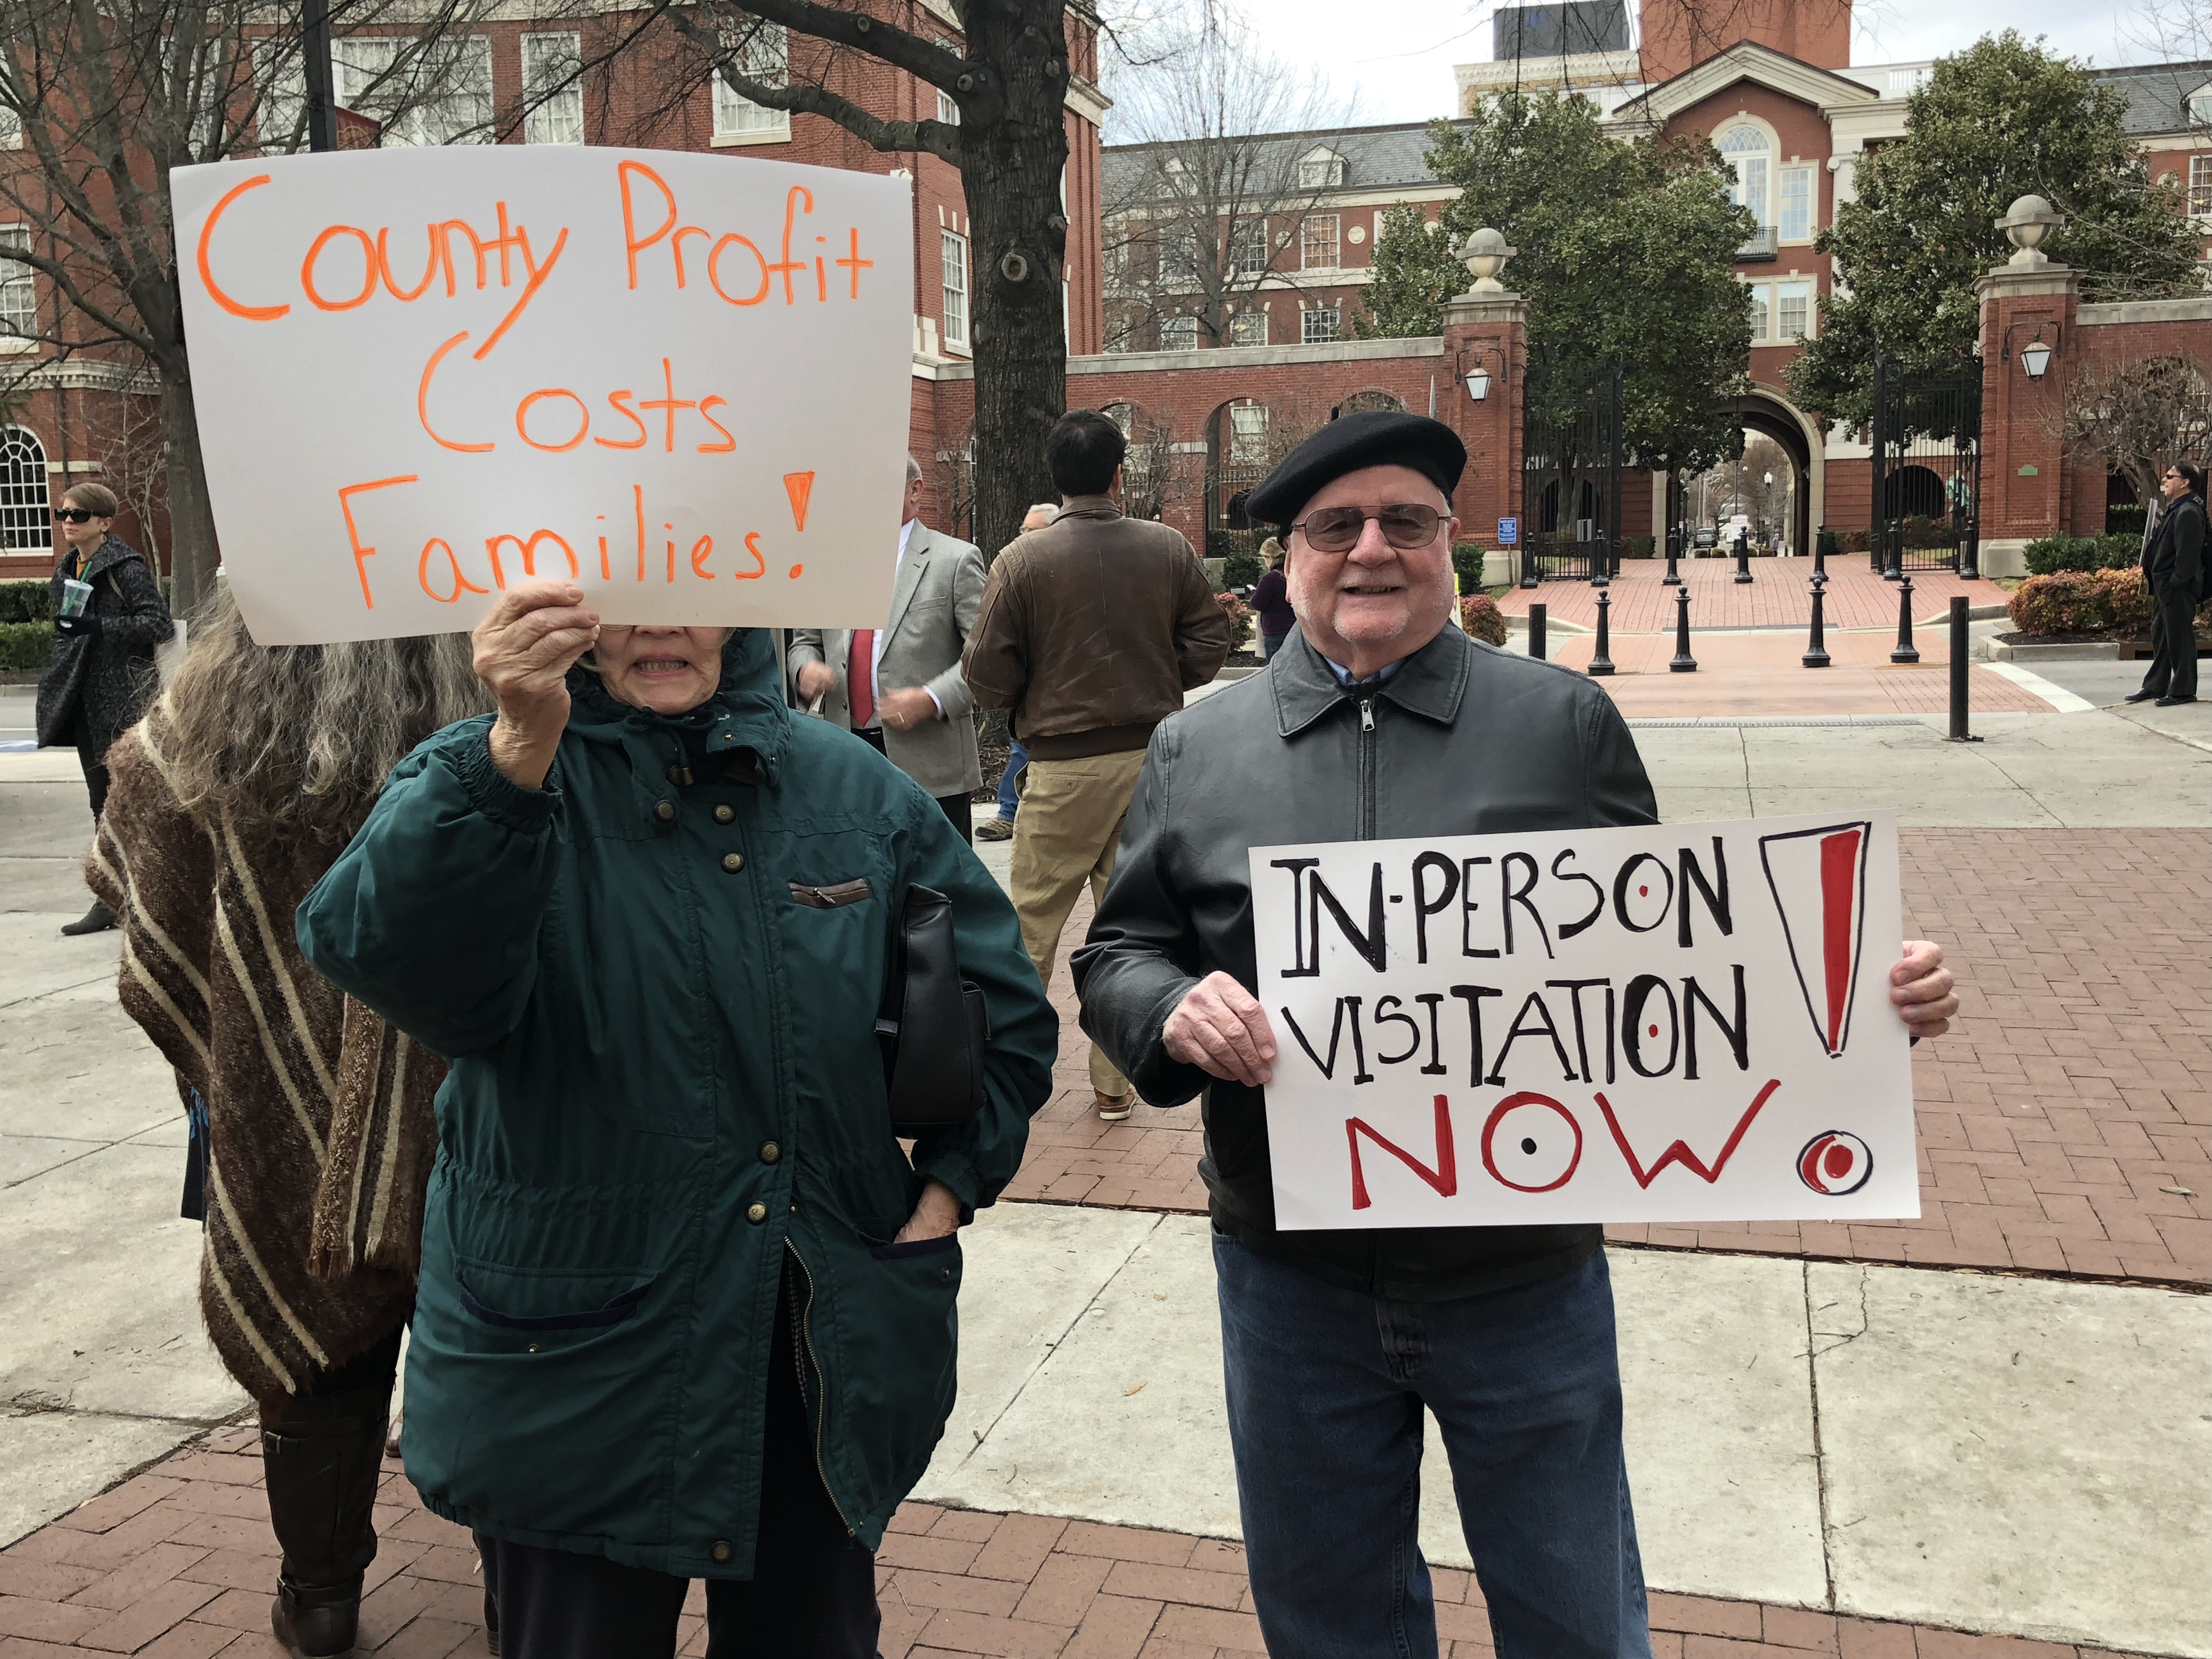 County Profit
Costs
Families!
IN-PERSON
VISITATION
NOW!